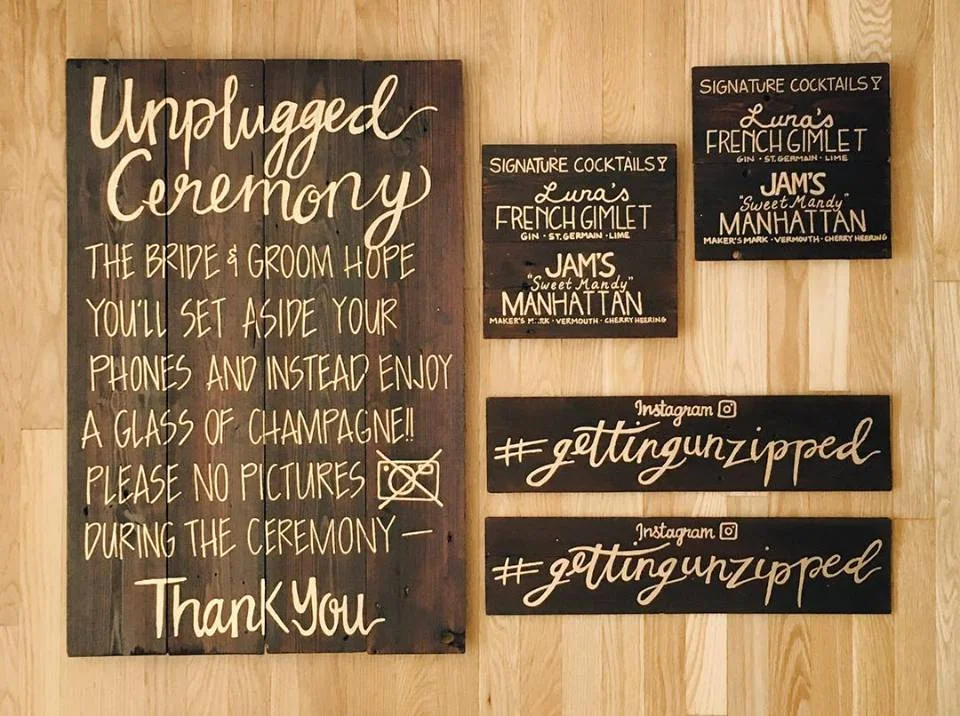 Unplugged
Ceremony
THE BRIDE & GROOM HOPE
YOU'LL SET ASIDE YOUR
PHONES AND INSTEAD ENJOY
A GLASS OF CHAMPAGNE!!
PLEASE NO PICTURES
DURING THE CEREMONY —
Thank You
SIGNATURE COCKTAILS
Luna's
FRENCH GIMLET
GIN · ST. GERMAIN · LIME
JAM'S
"Sweet Mandy"
MANHATTAN
MAKER'S MARK · VERMOUTH · CHERRY HEERING
SIGNATURE COCKTAILS
Luna's
FRENCH GIMLET
GIN · ST. GERMAIN · LIME
JAM'S
"Sweet Mandy"
MANHATTAN
MAKER'S MARK · VERMOUTH · CHERRY HEERING
Instagram
#gettingunzipped
Instagram
#gettingunzipped